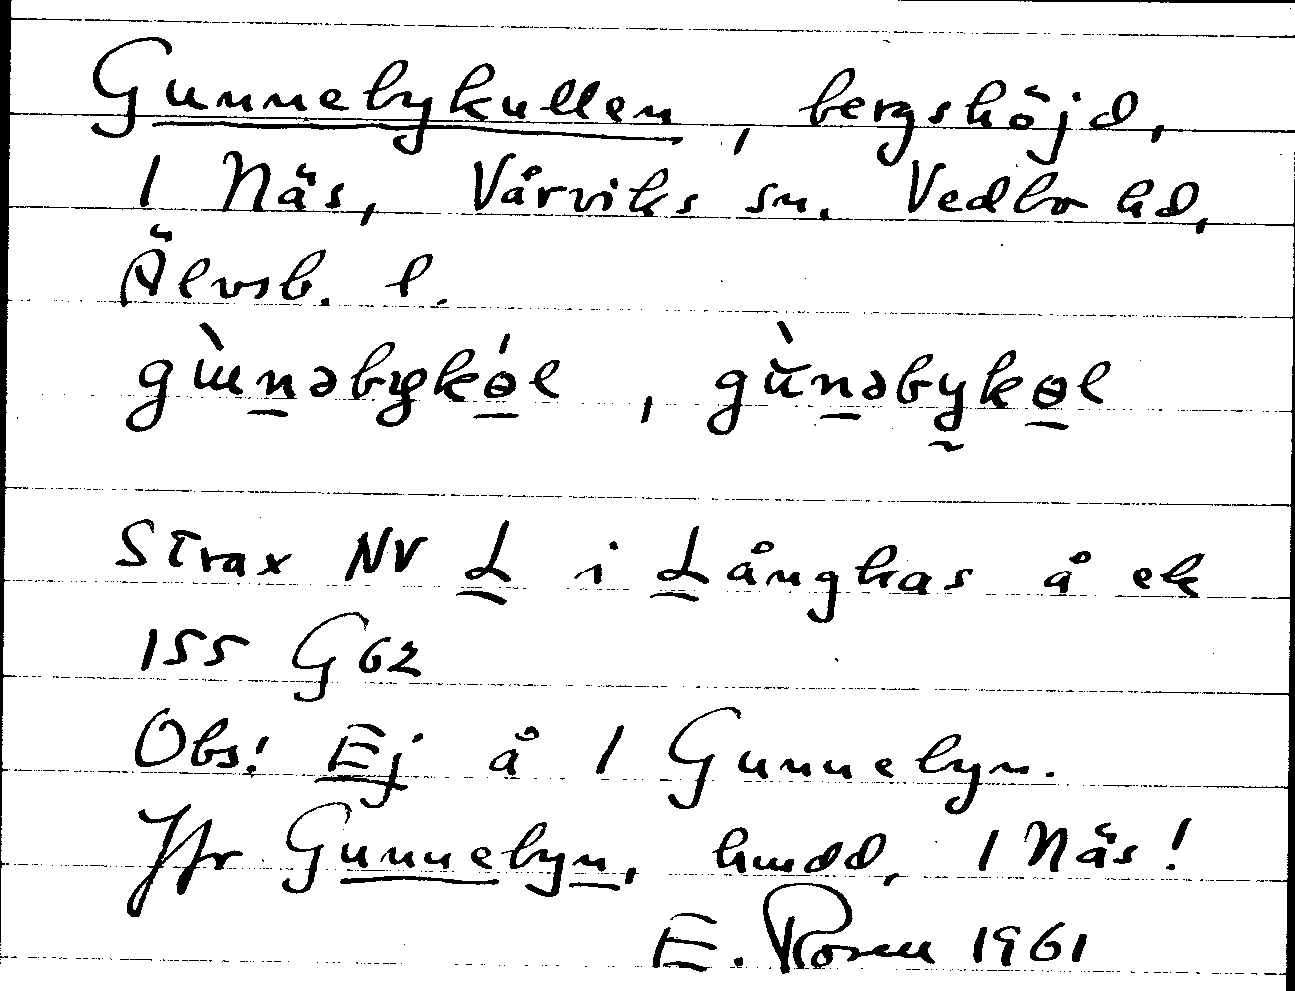 Gunnebykullen, bergshöjd,
1 Näs, Vårviks sn. Vedbo hd,
Älvsb. l.
gùnəbykɵ́l, gùnəbykɵl
Strax NV L i Långhas å ek
155 G62
Obs! Ej å 1 Gunnebyn.
Jfr Gunnebyn, hmdd, 1 Näs!
E. Rosen 1961